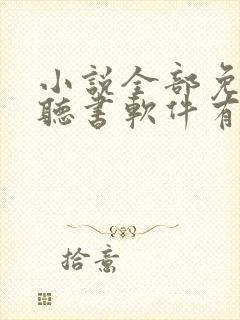 小說全部免
聽書軟件有
拾意